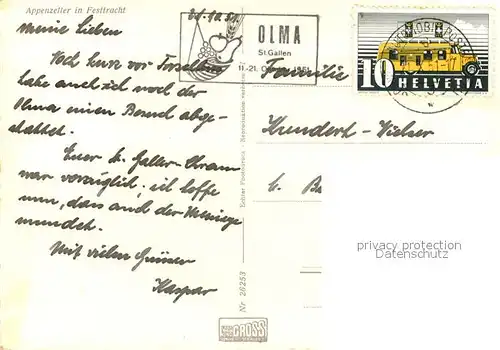 Appenzeller in Festtracht
21.10.51.
Meine Lieben
Noch kurz vor Torschluss
habe auch ich noch der
Olma einen Besuch abge-
stattet.
Euer St. Galler-Kram
war vorzüglich; ich hoffe
nun, dass auch der Meinige
mundet.
Mit vielen Grüssen
Kaspar
OLMA
St. Gallen
11.-21. Oktober 1951
10
HELVETIA
Familie
Kundert-
b. 
privacy protection
Datenschutz
Echter Photodruck - Reproduktion verboten
Nr 26253
GROSS